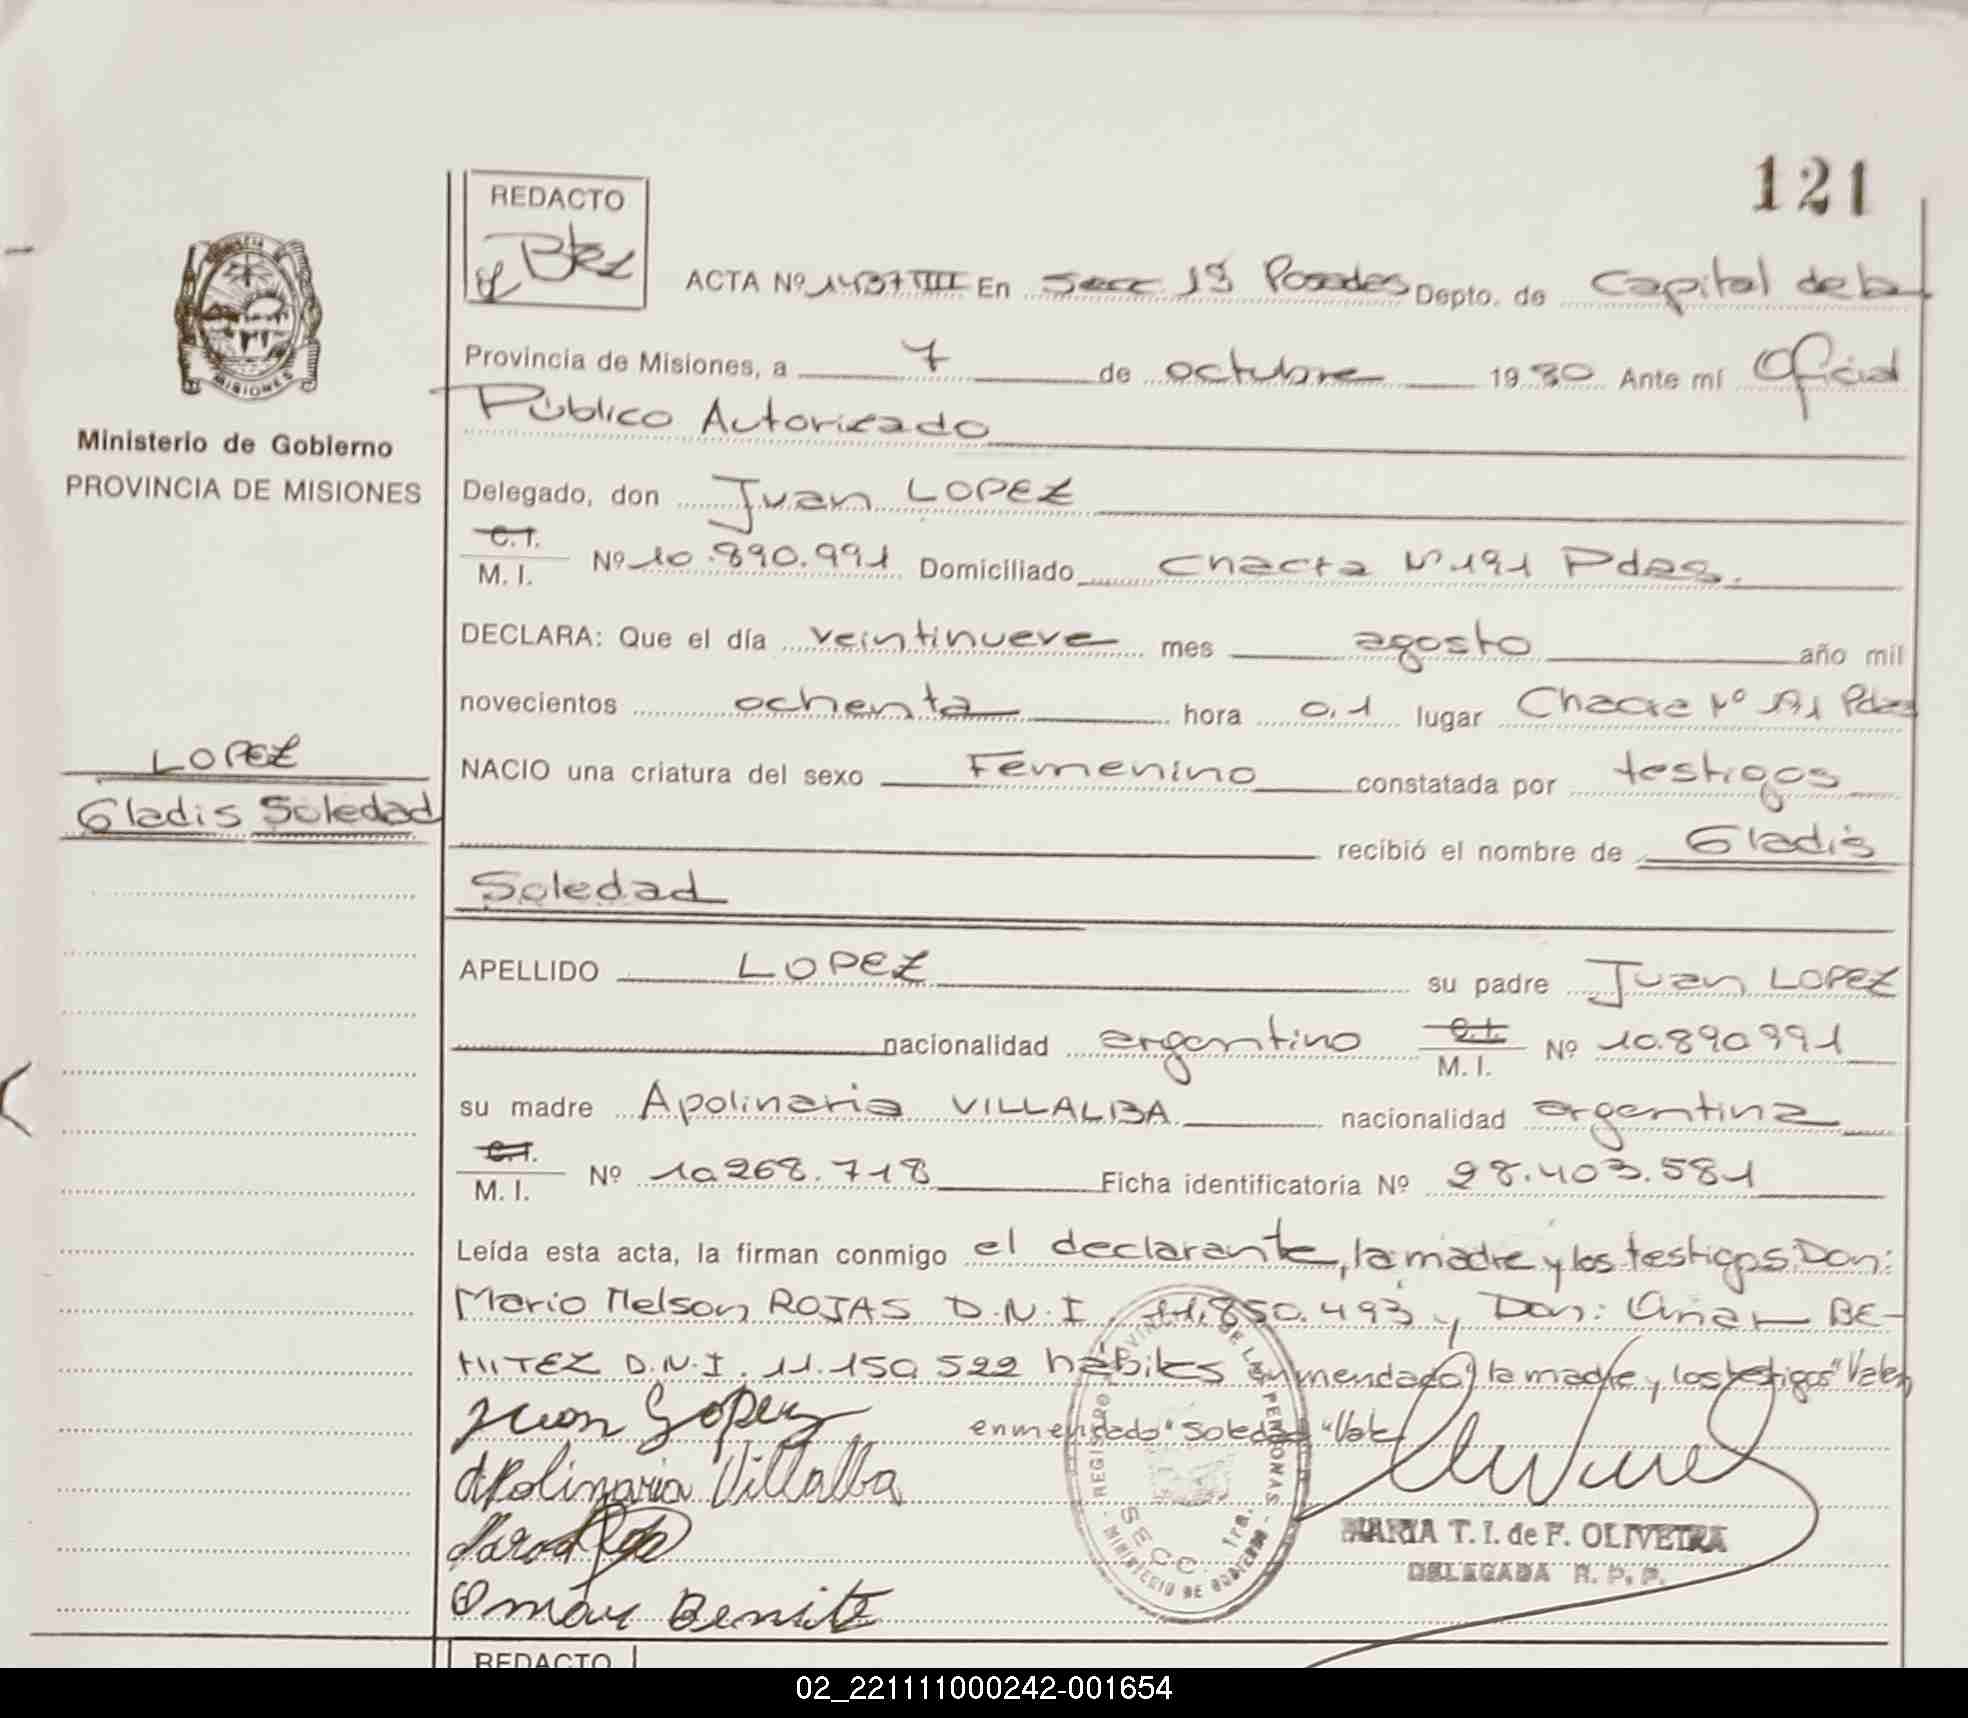 121
REDACTO
ACTA Nº 1437 TIII En Secc 1ª Posadas Depto. de Capital de la
Provincia de Misiones, a 7 de octubre 1980 Ante mí Oficial
Público Autorizado
MISIONES
Ministerio de Gobierno
PROVINCIA DE MISIONES
Delegado, don Juan LOPEZ
C.I.
M. I. Nº 10.890.991 Domiciliado Chacra Nº 191 Pdas.
DECLARA: Que el día veintinueve mes agosto año mil
novecientos ochenta hora 0,1 lugar Chacra Nº 191 Pdas
LOPEZ
Gladis Soledad
NACIO una criatura del sexo Femenino constatada por testigos
recibió el nombre de Gladis
Soledad
APELLIDO LOPEZ su padre Juan LOPEZ
nacionalidad argentino C.I. M. I. Nº 10.890.991
su madre Apolinaria VILLALBA nacionalidad argentina
C.I.
M. I. Nº 10.268.718 Ficha identificatoria Nº 28.403.581
Leída esta acta, la firman conmigo el declarante, la madre y los testigos Don:
Mario Nelson ROJAS D.N.I. 11.850.493 y Don: Omar BE-
NITEZ D.N.I. 11.150.522 hábiles enmendado "la madre y los testigos" Valen
enmendado "Soledad" Vale
Juan Lopez
Apolinaria Villalba
Omar Benite
REGISTRO PROVINCIAL DE LAS PERSONAS
SECC. 1ra.
MINISTERIO DE GOBIERNO
MARIA T. I. de F. OLIVEIRA
DELEGADA R. P. P.
REDACTO
02_221111000242-001654